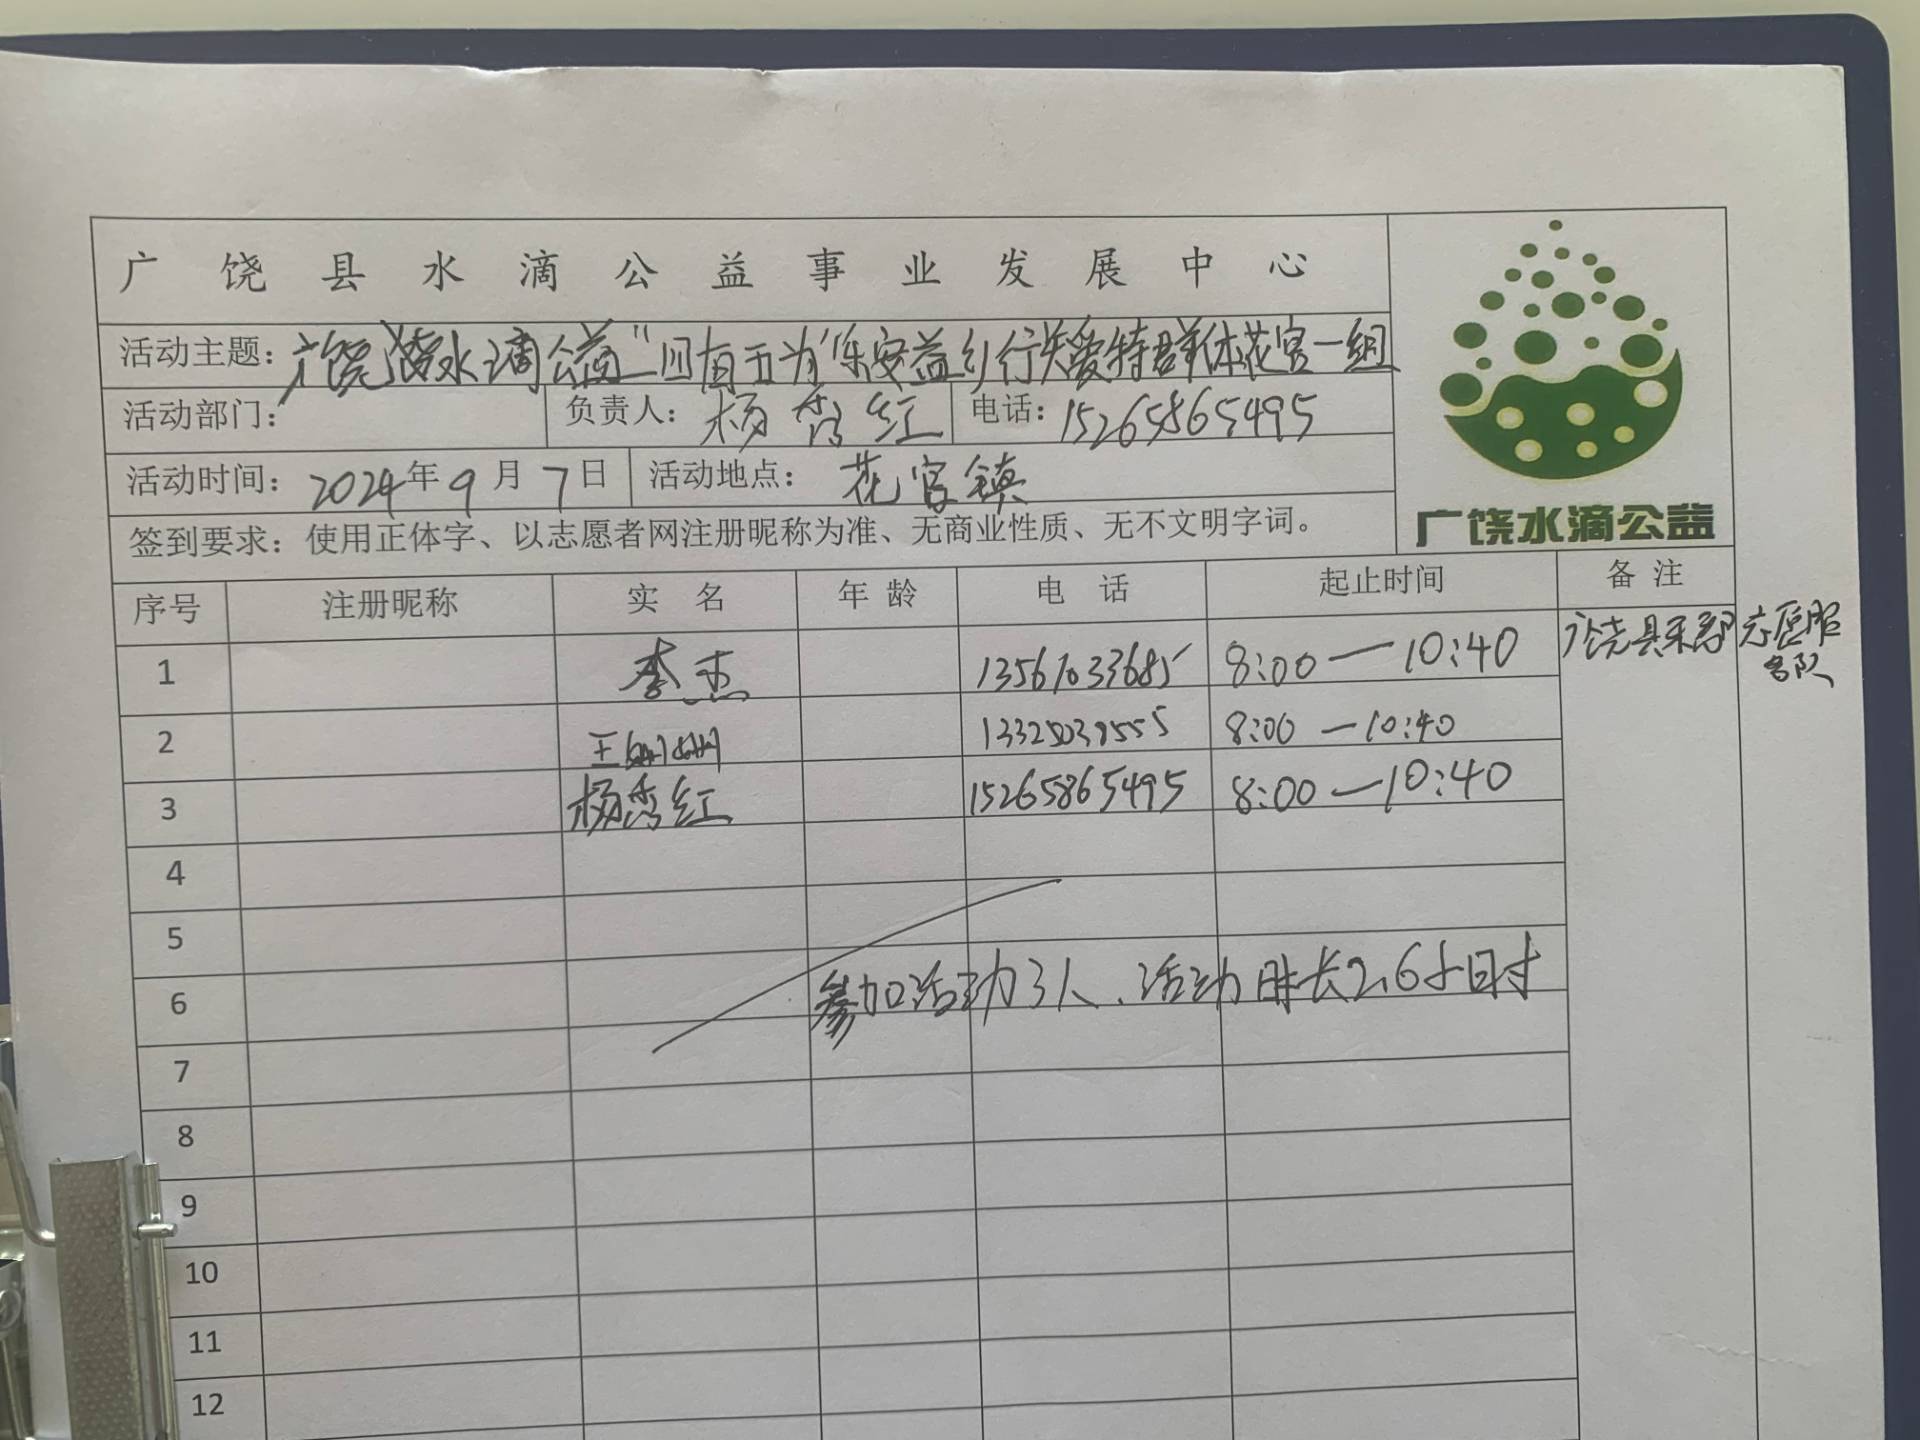 广饶县水滴公益事业发展中心
活动主题：广饶水滴公益"四有五为"保安益乡行关爱特群体花官一组
活动部门： 负责人：杨秀红 电话：15265865495
活动时间：2024年9月7日 活动地点：花官镇
签到要求：使用正体字、以志愿者网注册昵称为准、无商业性质、无不文明字词。
广饶水滴公益
序号 注册昵称 实名 年龄 电话 起止时间 备注
1 李杰 13561033685 8:00—10:40 广饶县 志愿服
务队
2 王 8:00—10:40
3 杨秀红 15265865495 8:00—10:40
4
5
6 参加活动3人、活动时长2.6小时
7
8
9
10
11
12